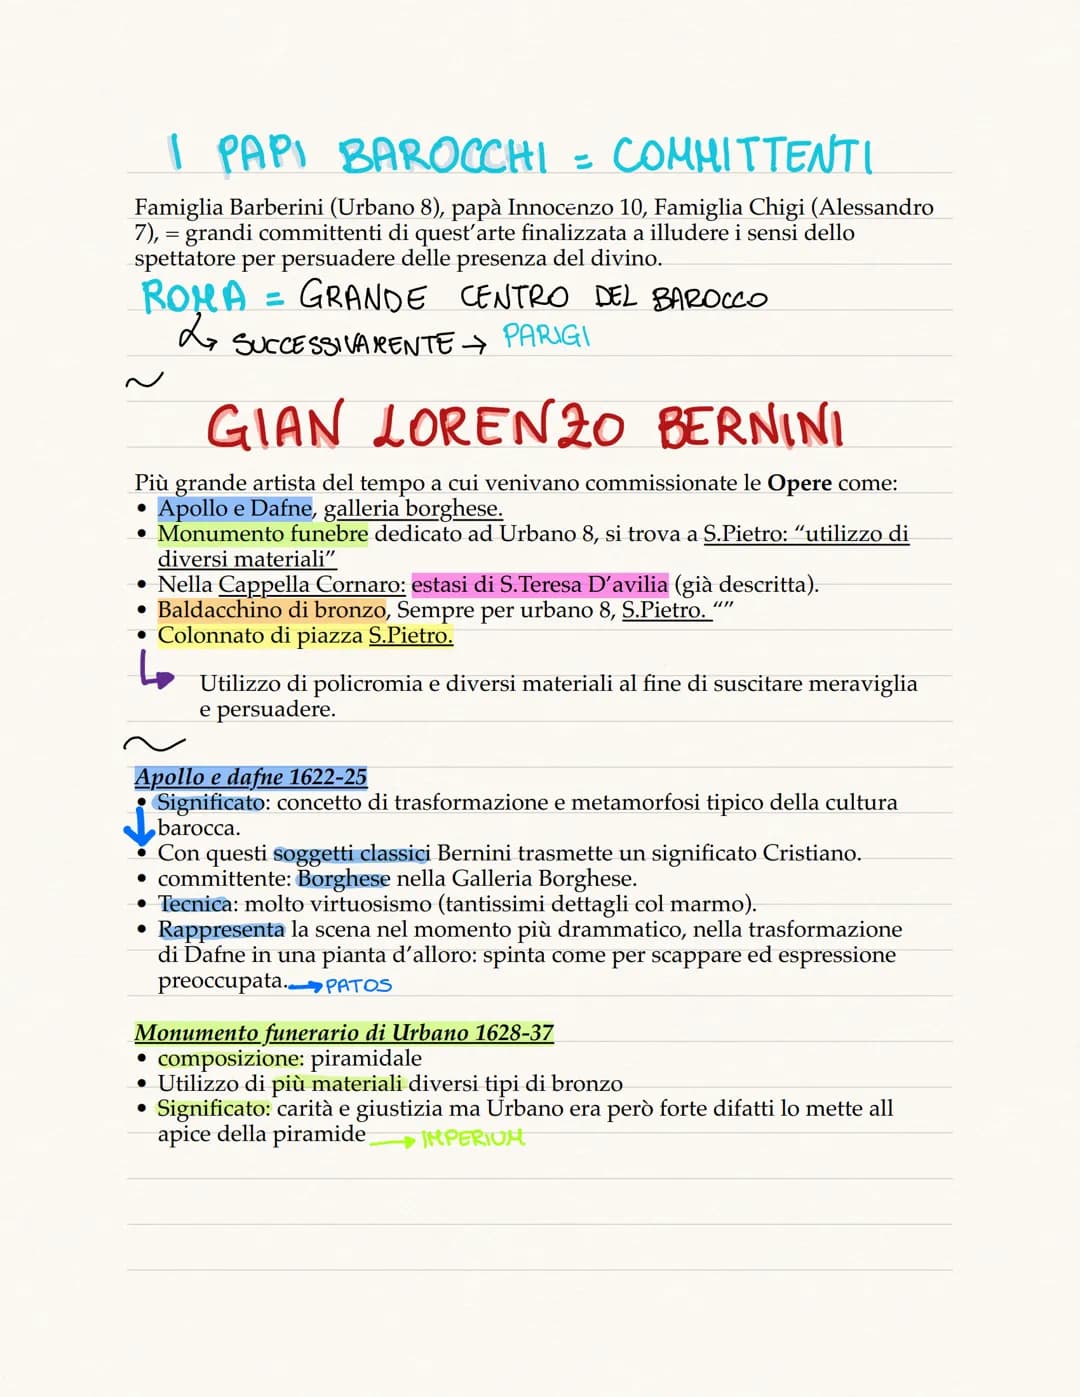 I PAPI BAROCCHI = COMMITTENTI
Famiglia Barberini (Urbano 8), papà Innocenzo 10, Famiglia Chigi (Alessandro
7), = grandi committenti di quest'arte finalizzata a illudere i sensi dello
spettatore per persuadere delle presenza del divino.
ROMA = GRANDE CENTRO DEL BAROCCO
↳ SUCCESSIVAMENTE → PARIGI
~
GIAN LORENZO BERNINI
Più grande artista del tempo a cui venivano commissionate le Opere come:
• Apollo e Dafne, galleria borghese.
• Monumento funebre dedicato ad Urbano 8, si trova a S.Pietro: “utilizzo di
diversi materiali”
• Nella Cappella Cornaro: estasi di S.Teresa D'avilia (già descritta).
• Baldacchino di bronzo, Sempre per urbano 8, S.Pietro. “”
• Colonnato di piazza S.Pietro.
↳ Utilizzo di policromia e diversi materiali al fine di suscitare meraviglia
e persuadere.
~
Apollo e dafne 1622-25
• Significato: concetto di trasformazione e metamorfosi tipico della cultura
barocca.
• Con questi soggetti classici Bernini trasmette un significato Cristiano.
• committente: Borghese nella Galleria Borghese.
• Tecnica: molto virtuosismo (tantissimi dettagli col marmo).
• Rappresenta la scena nel momento più drammatico, nella trasformazione
di Dafne in una pianta d'alloro: spinta come per scappare ed espressione
preoccupata. → PATOS
Monumento funerario di Urbano 1628-37
• composizione: piramidale
• Utilizzo di più materiali diversi tipi di bronzo
• Significato: carità e giustizia ma Urbano era però forte difatti lo mette all
apice della piramide → IMPERIUM